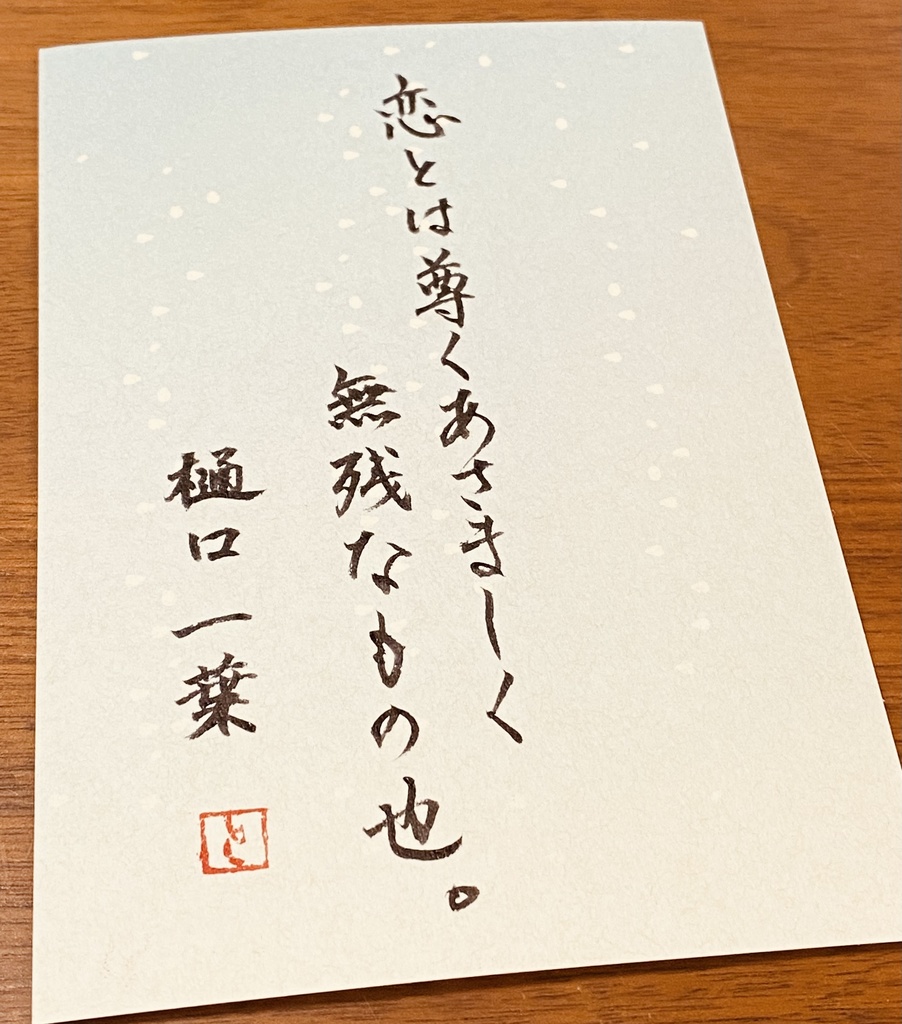 恋とは尊くあさましく
無残なもの也。
樋口一葉